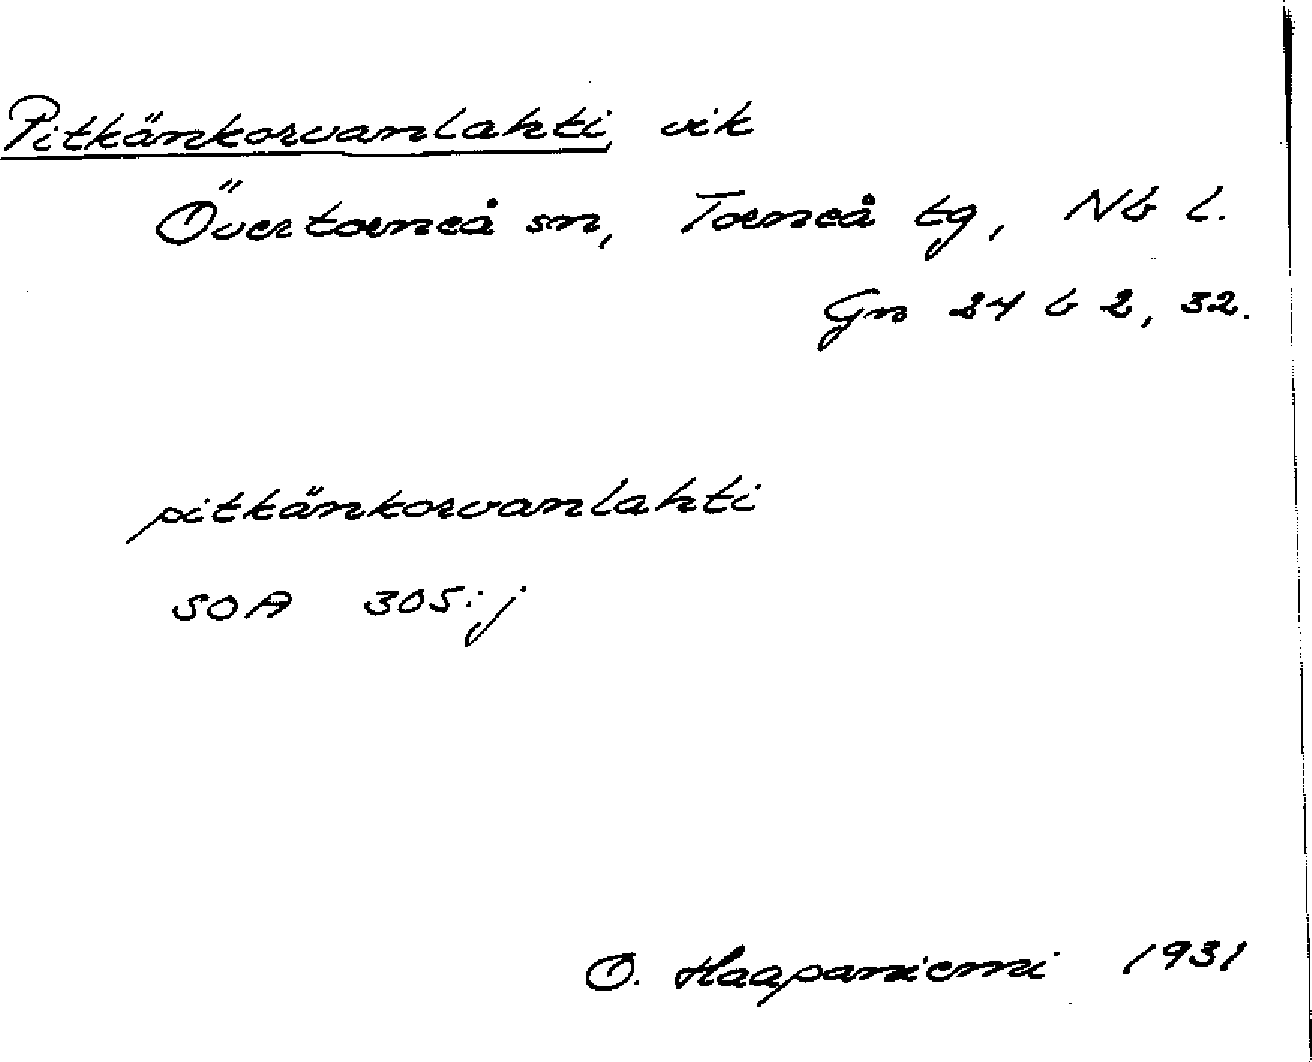 Pitkänkorvanlahti, vik
Övertorneå sn, Torneå tg, Nb l.
Gn 24 b 2, 32.
pitkänkorvanlahti
SOA 305:j
O. Haapaniemi 1931